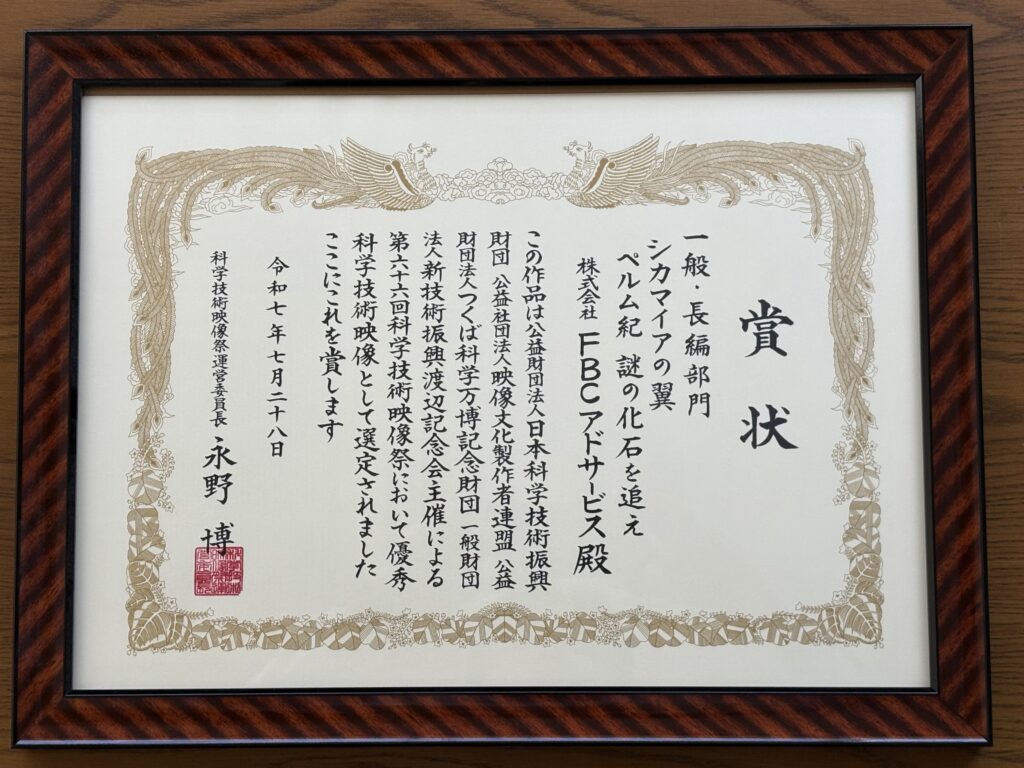 賞状
一般・長編部門
シカマイアの翼
ペルム紀 謎の化石を追え
株式会社 FBCアドサービス殿
この作品は公益財団法人日本科学技術振興
財団 公益社団法人映像文化製作者連盟 公益
財団法人つくば科学万博記念財団 一般財団
法人新技術振興渡辺記念会主催による
第六十六回科学技術映像祭において優秀
科学技術映像として選定されました
ここにこれを賞します
令和七年七月二十八日
科学技術映像祭運営委員長 永野 博